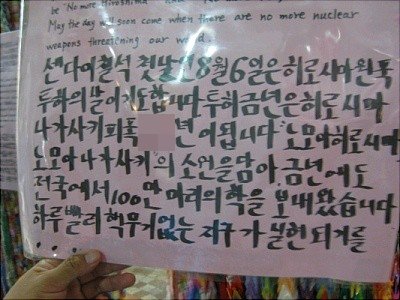 be "No more Hiroshima
May the day will soon come when there are no more nuclear
weapons threatening our world.
센다이칠석 첫날인8월6일은히로시마원폭
투하의날이기도합니다 투히금년은히로시마
나가사키피폭 년이됩니다 노모아히로시마
노모아나가사키의 소원을담아 금년에도
전국에서100만 마리의학을 보내왔습니다
하루빨리 핵무기없는 지구가 실현되기를
...